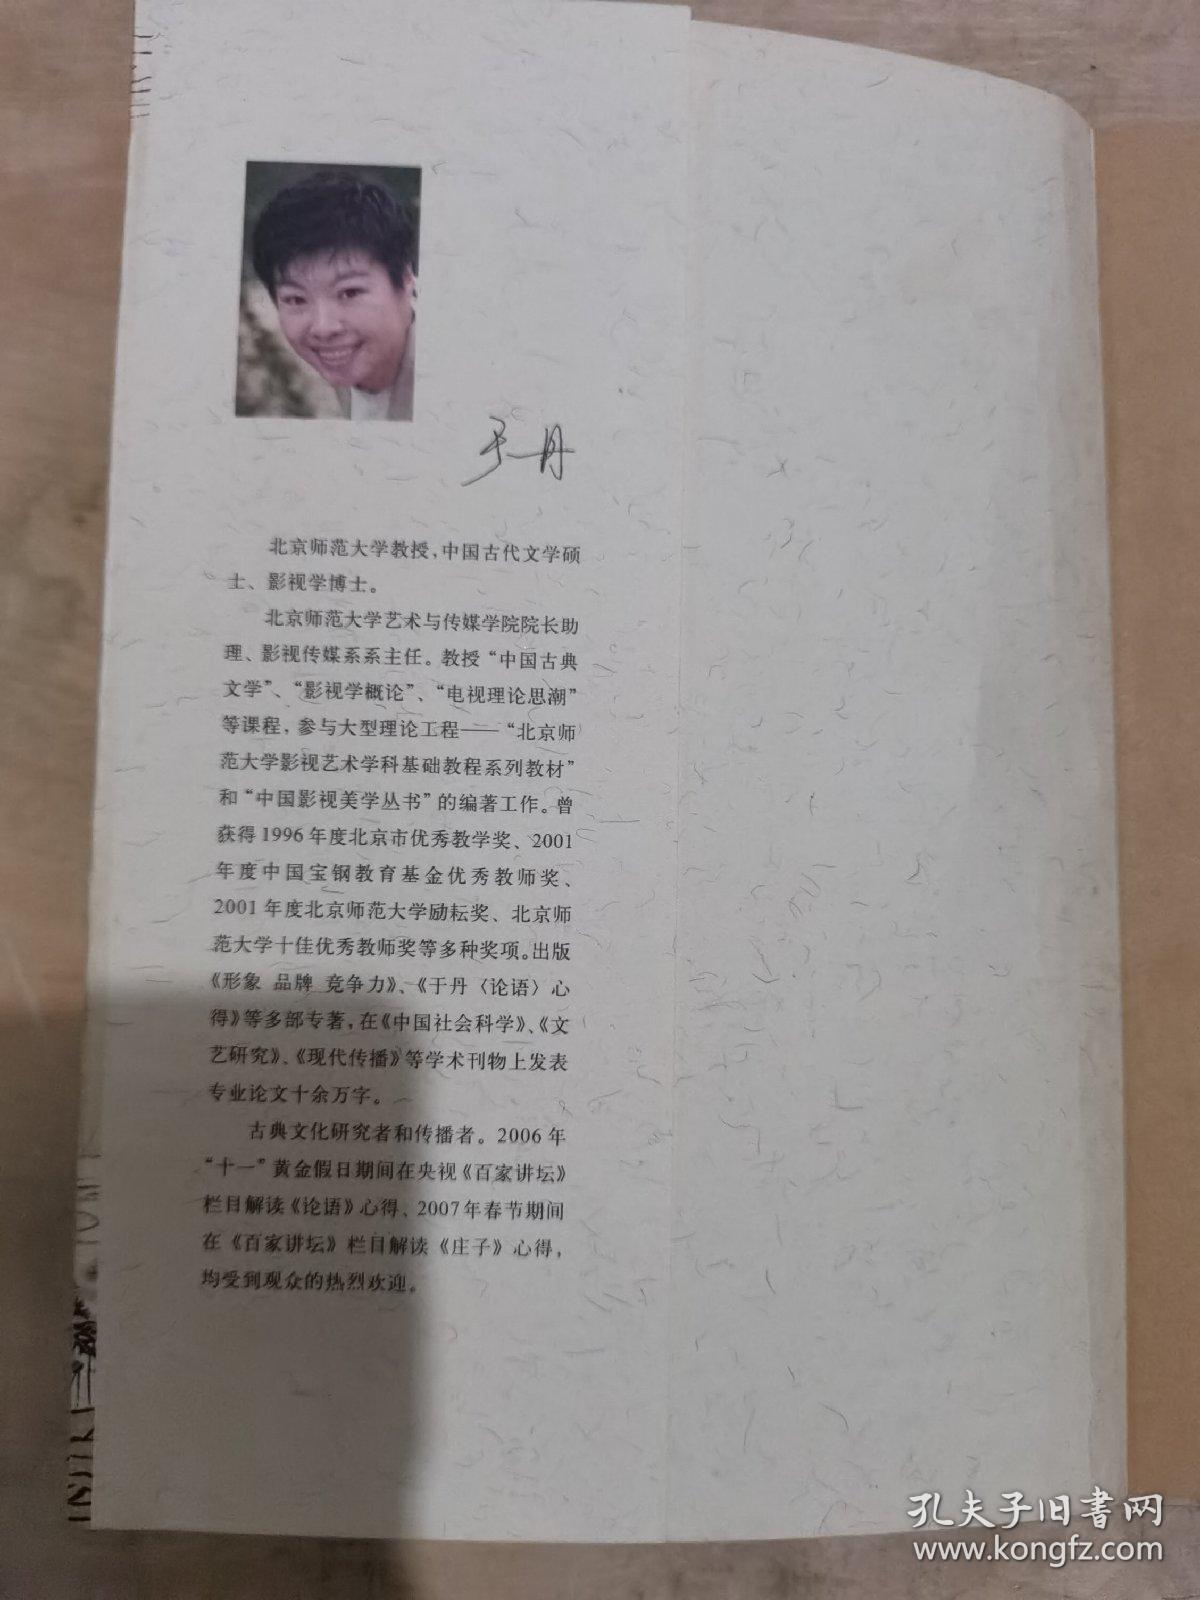 于丹
北京师范大学教授，中国古代文学硕
士、影视学博士。
北京师范大学艺术与传媒学院院长助
理、影视传媒系系主任。教授“中国古典
文学”、“影视学概论”、“电视理论思潮”
等课程，参与大型理论工程——“北京师
范大学影视艺术学科基础教程系列教材”
和“中国影视美学丛书”的编著工作。曾
获得1996年度北京市优秀教学奖、2001
年度中国宝钢教育基金优秀教师奖、
2001年度北京师范大学励耘奖、北京师
范大学十佳优秀教师奖等多种奖项。出版
《形象 品牌 竞争力》、《于丹〈论语〉心
得》等多部专著，在《中国社会科学》、《文
艺研究》、《现代传播》等学术刊物上发表
专业论文十余万字。
古典文化研究者和传播者。2006年
“十一”黄金假日期间在央视《百家讲坛》
栏目解读《论语》心得、2007年春节期间
在《百家讲坛》栏目解读《庄子》心得，
均受到观众的热烈欢迎。
孔夫子旧书网
www.kongfz.com